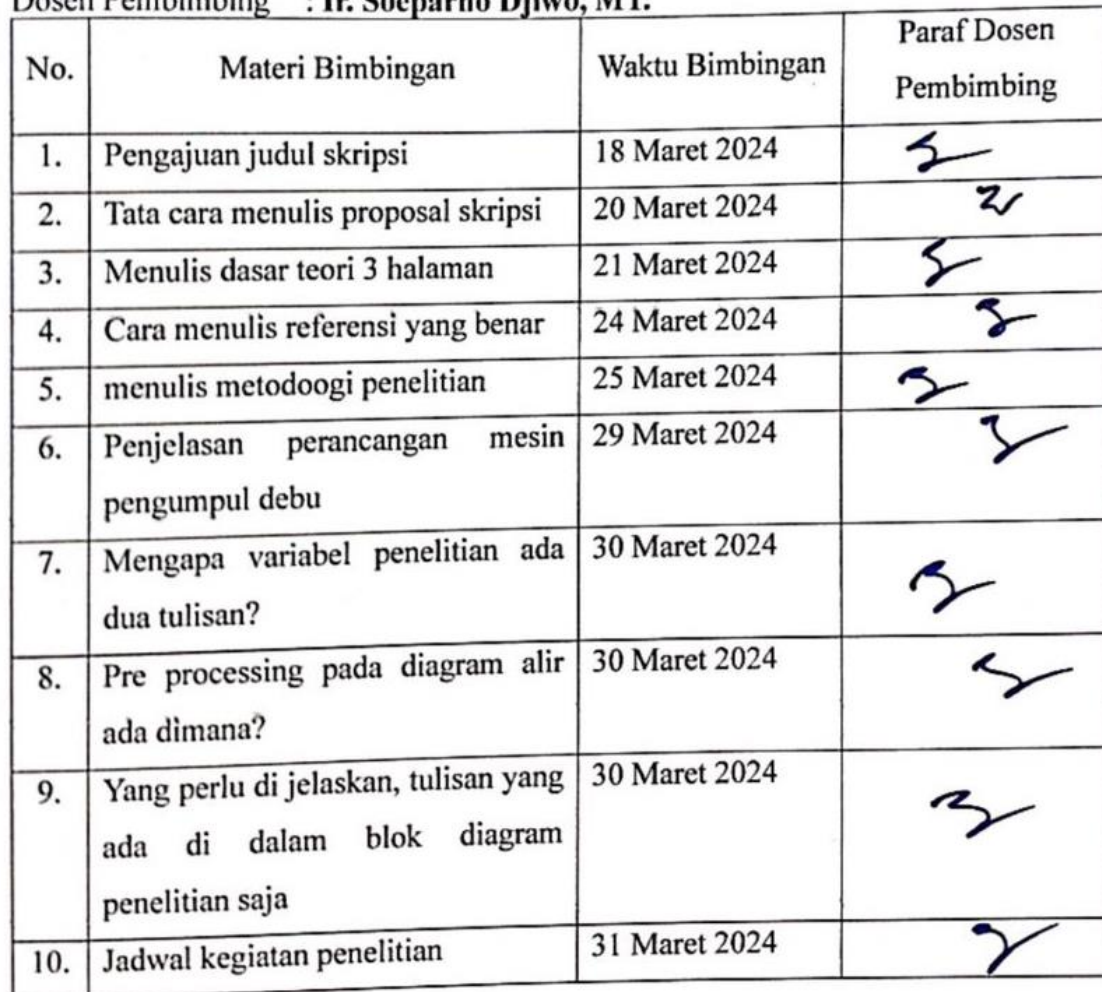 Dosen Pembimbing : Ir. Soeparno Djiwo, MT.
No. Materi Bimbingan Waktu Bimbingan Paraf Dosen
Pembimbing
1. Pengajuan judul skripsi 18 Maret 2024
2. Tata cara menulis proposal skripsi 20 Maret 2024
3. Menulis dasar teori 3 halaman 21 Maret 2024
4. Cara menulis referensi yang benar 24 Maret 2024
5. menulis metodoogi penelitian 25 Maret 2024
6. Penjelasan perancangan mesin 29 Maret 2024
pengumpul debu
7. Mengapa variabel penelitian ada 30 Maret 2024
dua tulisan?
8. Pre processing pada diagram alir 30 Maret 2024
ada dimana?
9. Yang perlu di jelaskan, tulisan yang 30 Maret 2024
ada di dalam blok diagram
penelitian saja
10. Jadwal kegiatan penelitian 31 Maret 2024